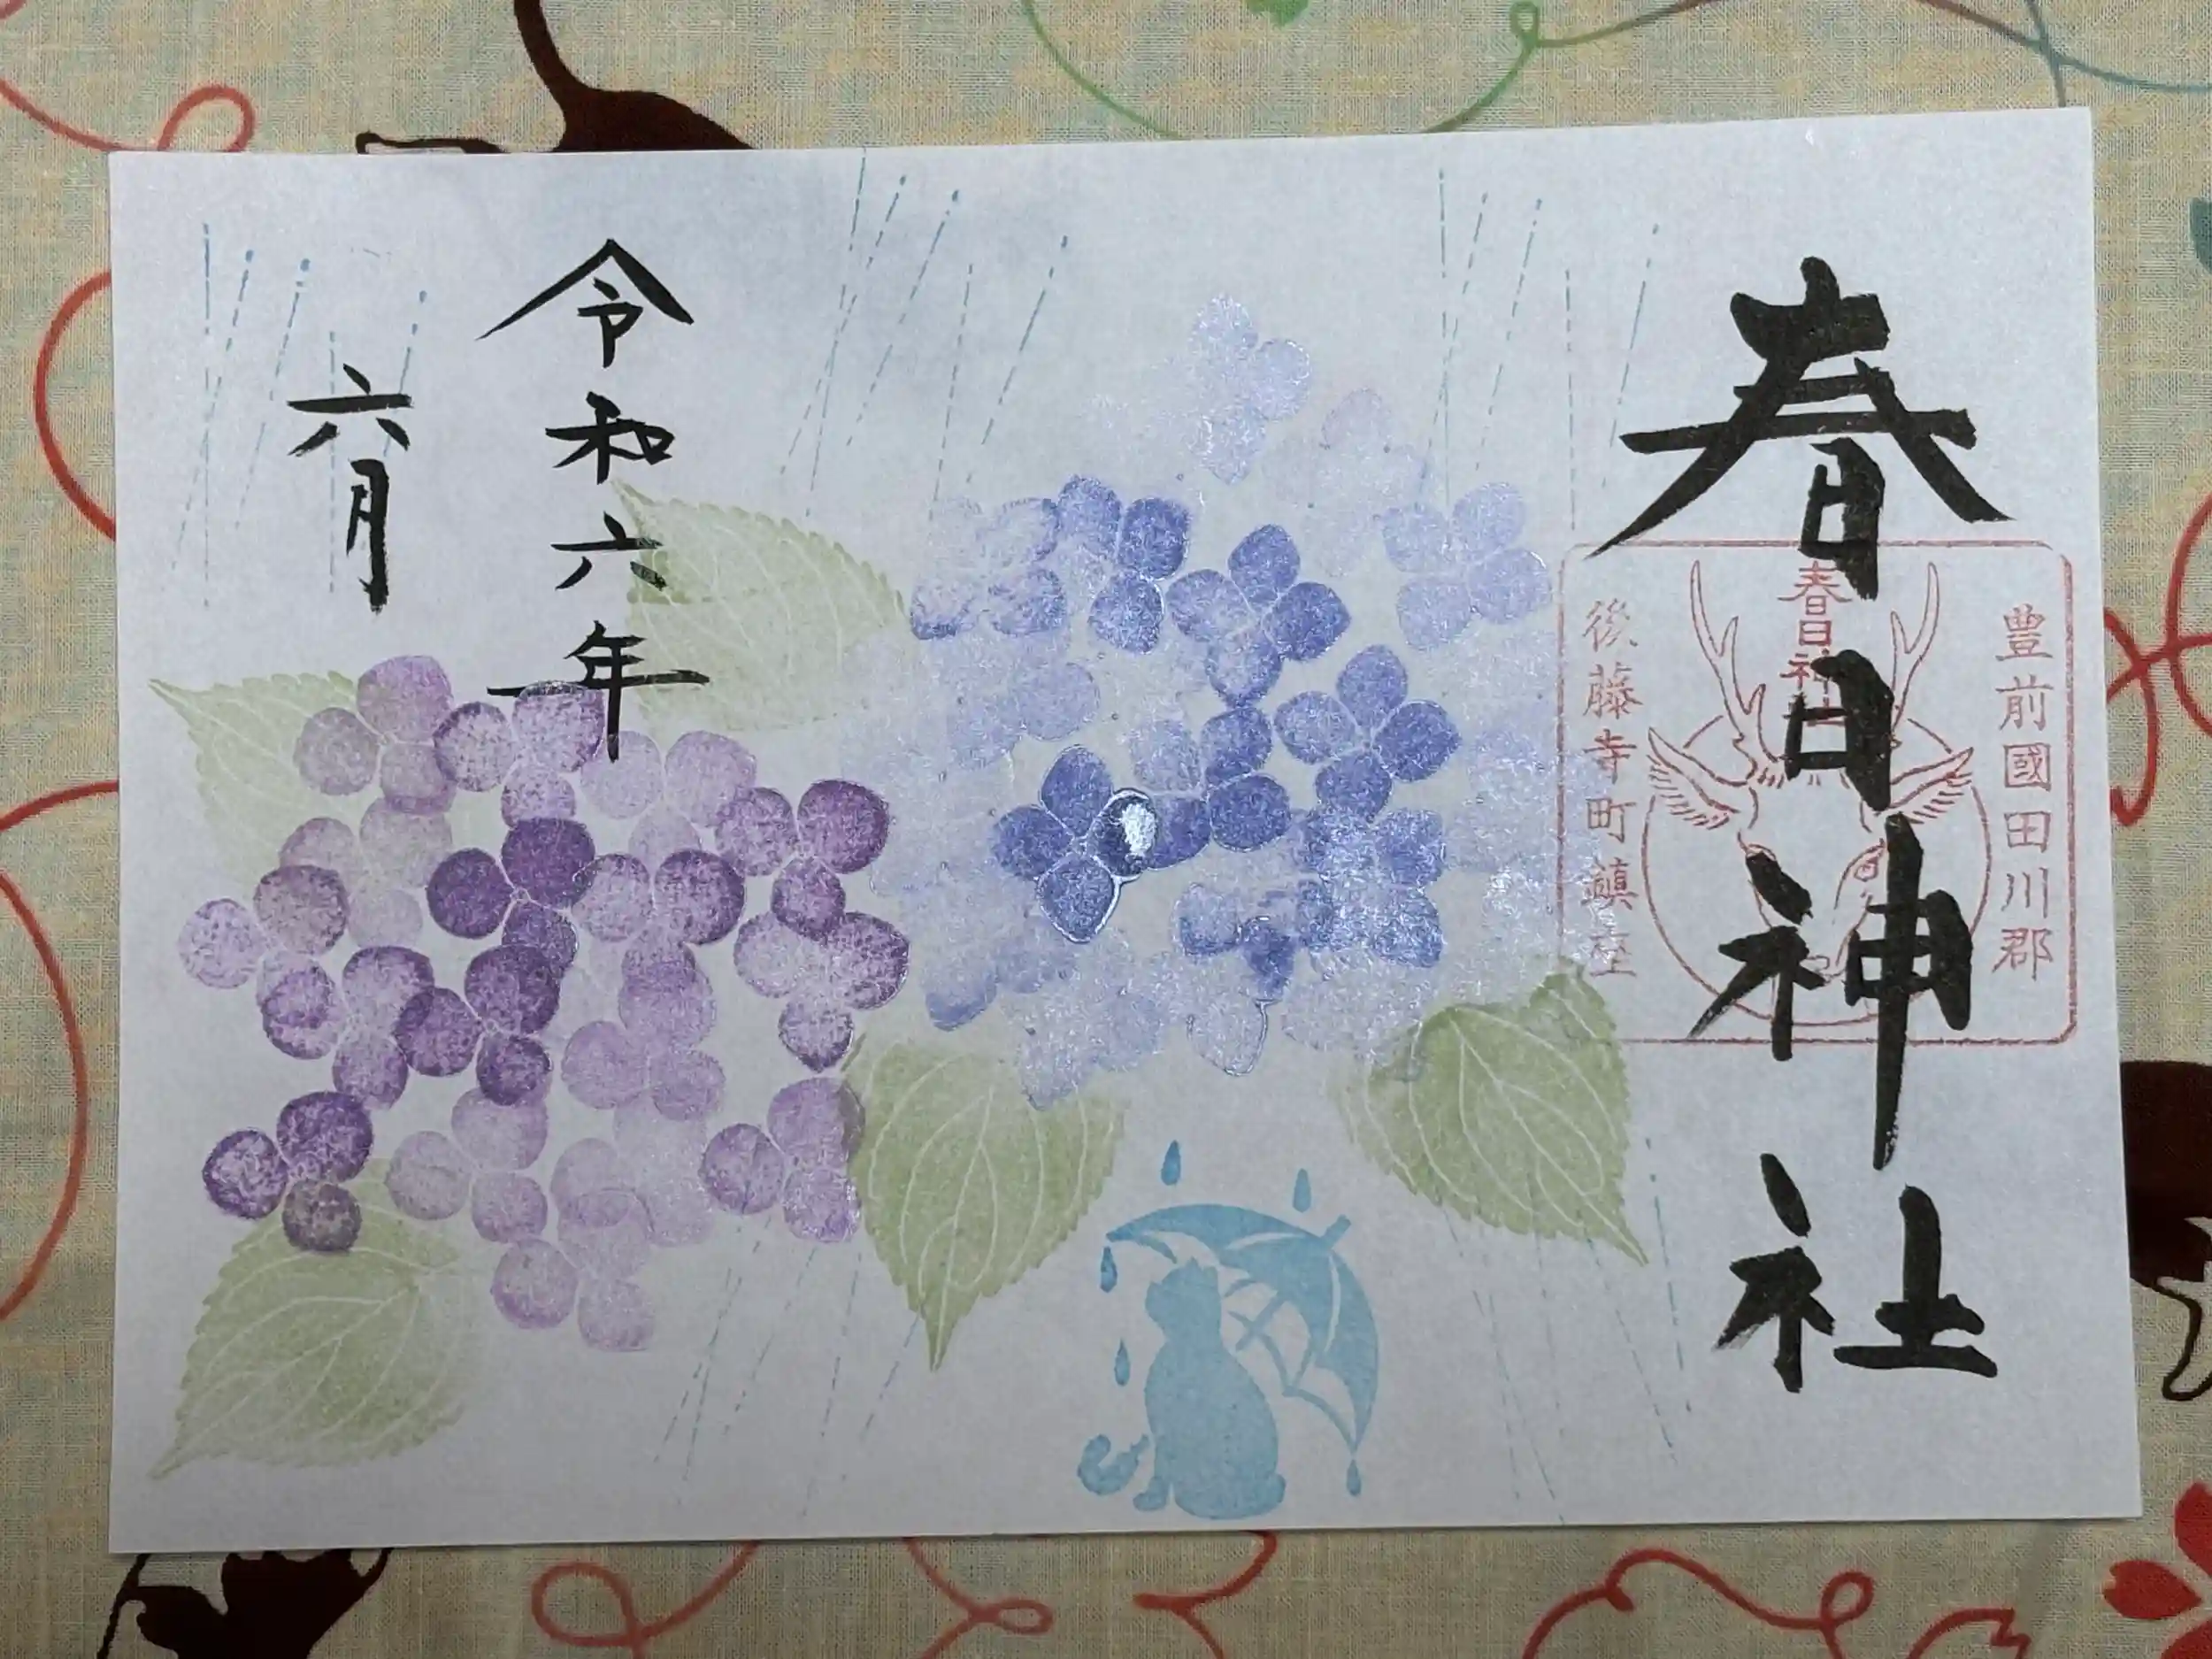 春日神社
豊前國田川郡
春日神社
後藤寺町鎮座
令和六年
六月